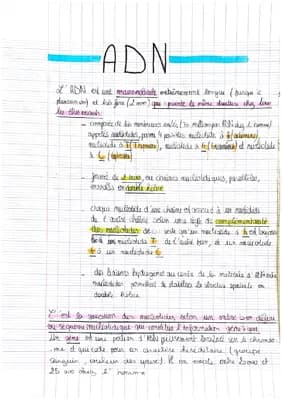 ADN
L'ADN est une macromolécule extrêmement longue (jusqu'à
plusieurs cm) et très fine (2 nm) qui présente la même structure chez tous
les êtres vivants:
- composée de très nombreux nucléotides
appelés nucléotides, parmi 4 possibles nucléotide à A (adénine),
nucléotide à T (thymine), nucléotide à G (guanine) et nucléotide
à C (cytosine)
- formé de 2 brins, ou chaînes nucléotidiques, parallèles,
enroulés en double hélice
chaque nucléotide d'une chaîne est associé à un nucléotide
de l'autre chaîne selon une règle de complémentarité
des nucléotides de sorte qu'un nucléotide A est toujours
un nucléotide T de l'autre brin, et un nucléotide
G à un nucléotide C
- des liaisons hydrogène au centre de la molécule
nucléotides permettent de stabiliser la structure spatiale en
double hélice
C'est la succession des nucléotides selon un ordre bien défini
ou séquence nucléotidique qui constitue l'information génétique
Un gène est une portion d'ADN précisément localisé sur le chromo-
me et qui code pour un caractère héréditaire (groupe
sanguin, couleur des yeux). Il en existe entre 20000 et
25 000 chez l'homme